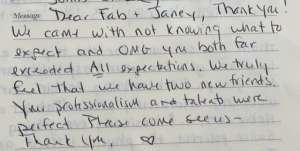 Message Dear Fab + Janey, Thank you!
We came with not knowing what to
expect and OMG you both far
exceeded All expectations. We truly
feel that we have two new friends.
Your professionalism and talents were
perfect Please come see us -
Thank you, ♡